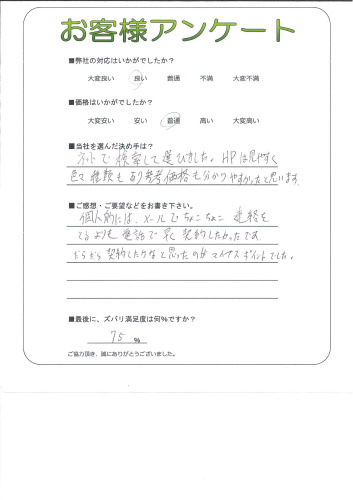 お客様アンケート
■弊社の対応はいかがでしたか?
大変良い 良い 普通 不満 大変不満
■価格はいかがでしたか?
大変安い 安い 普通 高い 大変高い
■当社を選んだ決め手は?
ネットで検索して選びました。HPは見やすく
色々種類もあり参考価格も分かりやすかったと思います
■ご感想・ご要望などをお書き下さい。
個人的には、メールでちょこちょこ連絡を
するよりも電話で早く契約したかったです。
だらだら契約したかなと思ったのがマイナスポイントでした。
■最後に、ズバリ満足度は何%ですか?
75 %
ご協力頂き、誠にありがとうございました。